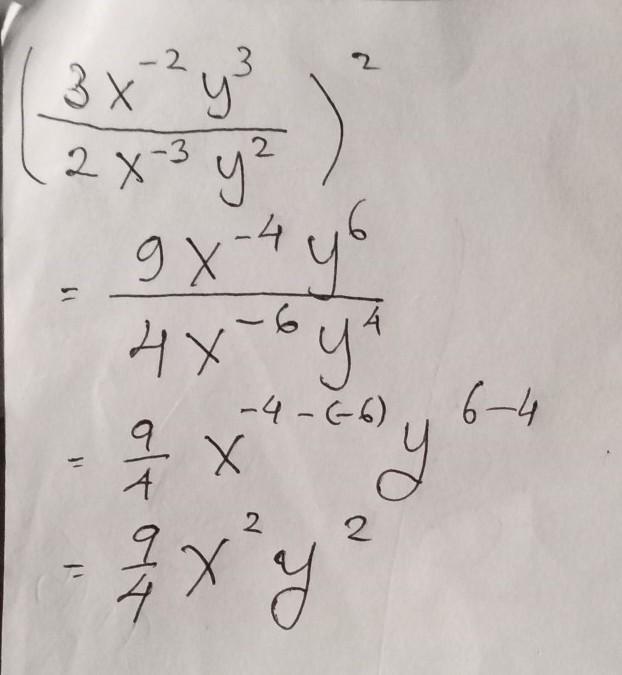 (3x⁻²y³ / 2x⁻³y²)²
= 9x⁻⁴y⁶ / 4x⁻⁶y⁴
= 9/4 x⁻⁴⁻⁽⁻⁶⁾ y⁶⁻⁴
= 9/4 x²y²